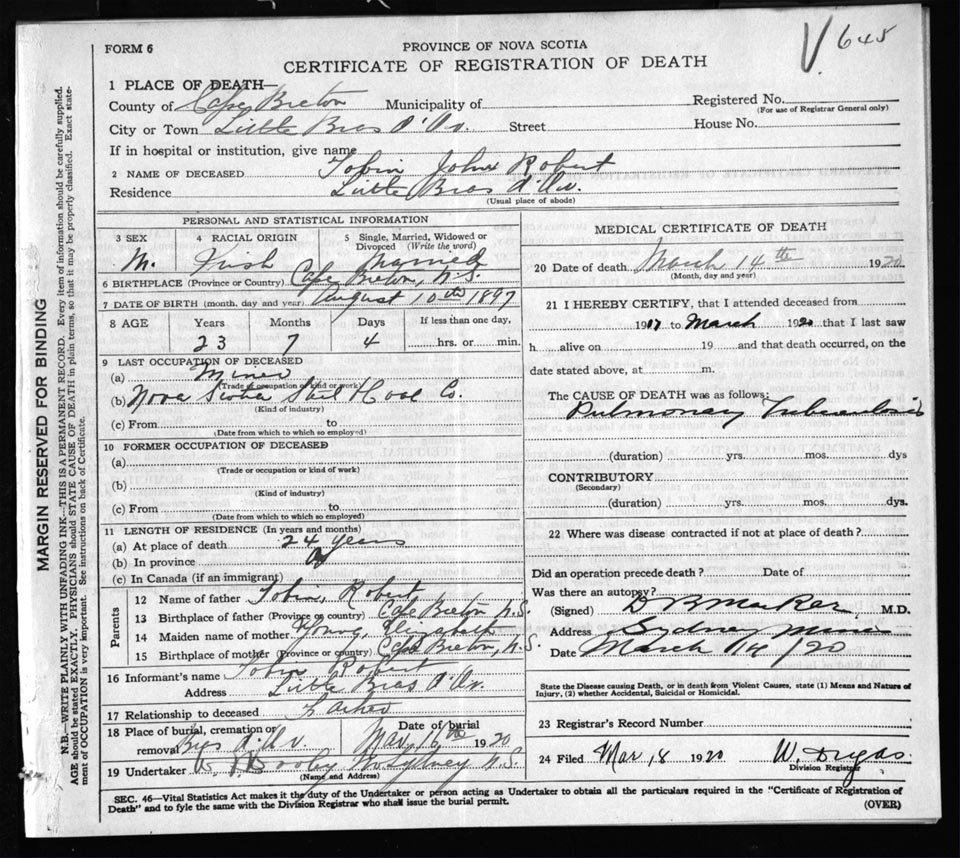 V. 645
FORM 6
PROVINCE OF NOVA SCOTIA
CERTIFICATE OF REGISTRATION OF DEATH
1 PLACE OF DEATH—
County of Cape Breton Municipality of
Registered No.
(For use of Registrar General only)
City or Town Little Bras d'Or. Street House No.
If in hospital or institution, give name
2 NAME OF DECEASED Tobin John Robert
Residence Little Bras d'Or.
(Usual place of abode)
PERSONAL AND STATISTICAL INFORMATION
3 SEX 4 RACIAL ORIGIN 5 Single, Married, Widowed or Divorced (Write the word)
M. Irish Married
6 BIRTHPLACE (Province or Country) Cape Breton, N.S.
7 DATE OF BIRTH (month, day and year) August 10th 1897
8 AGE Years Months Days If less than one day,
23 7 4 hrs. or min.
9 LAST OCCUPATION OF DECEASED
(a) Miner
(Trade or occupation or kind of work)
(b) Nova Scotia Steel & Coal Co.
(Kind of industry)
(c) From to
(Date from which to which so employed)
10 FORMER OCCUPATION OF DECEASED
(a)
(Trade or occupation or kind of work)
(b)
(Kind of industry)
(c) From to
(Date from which to which so employed)
11 LENGTH OF RESIDENCE (In years and months)
(a) At place of death 24 years
(b) In province
(c) In Canada (if an immigrant)
Parents
12 Name of father Tobin, Robert
13 Birthplace of father (Province or country) Cape Breton N.S.
14 Maiden name of mother Young, Elizabeth
15 Birthplace of mother (Province or country) Cape Breton, N.S.
16 Informant's name Tobin Robert
Address Little Bras d'Or.
17 Relationship to deceased Father
18 Place of burial, cremation or removal Bras d'Or Date of burial Mar. 16th 1920
19 Undertaker Sydney N.S.
(Name and Address)
MEDICAL CERTIFICATE OF DEATH
20 Date of death March 14th 1920
(Month, day and year)
21 I HEREBY CERTIFY, that I attended deceased from
1917 to March 1920 that I last saw
h alive on 19 and that death occurred, on
date stated above, at m.
The CAUSE OF DEATH was as follows:
Pulmonary Tuberculosis
(duration) yrs. mos. dys
CONTRIBUTORY
(Secondary)
(duration) yrs. mos. dys.
22 Where was disease contracted if not at place of death?
Did an operation precede death? Date of
Was there an autopsy?
(Signed) M.D.
Address Sydney Mines
Date March 14/20
State the Disease causing Death, or in death from Violent Causes, state (1) Means and Nature of
Injury, (2) whether Accidental, Suicidal or Homicidal.
23 Registrar's Record Number
24 Filed Mar 18 1920 W. Dugas
Division Registrar
SEC. 46—Vital Statistics Act makes it the duty of the Undertaker or person acting as Undertaker to obtain all the particulars required in the "Certificate of Registration of
Death" and to fyle the same with the Division Registrar who shall issue the burial permit.
(OVER)
MARGIN RESERVED FOR BINDING
N.B.—WRITE PLAINLY WITH UNFADING INK—THIS IS A PERMANENT RECORD. Every item of information should be carefully supplied.
AGE should be stated EXACTLY. PHYSICIANS should STATE CAUSE OF DEATH in plain terms, so that it may be properly classified. Exact state-
ment of OCCUPATION is very important. See instructions on back of Certificate.